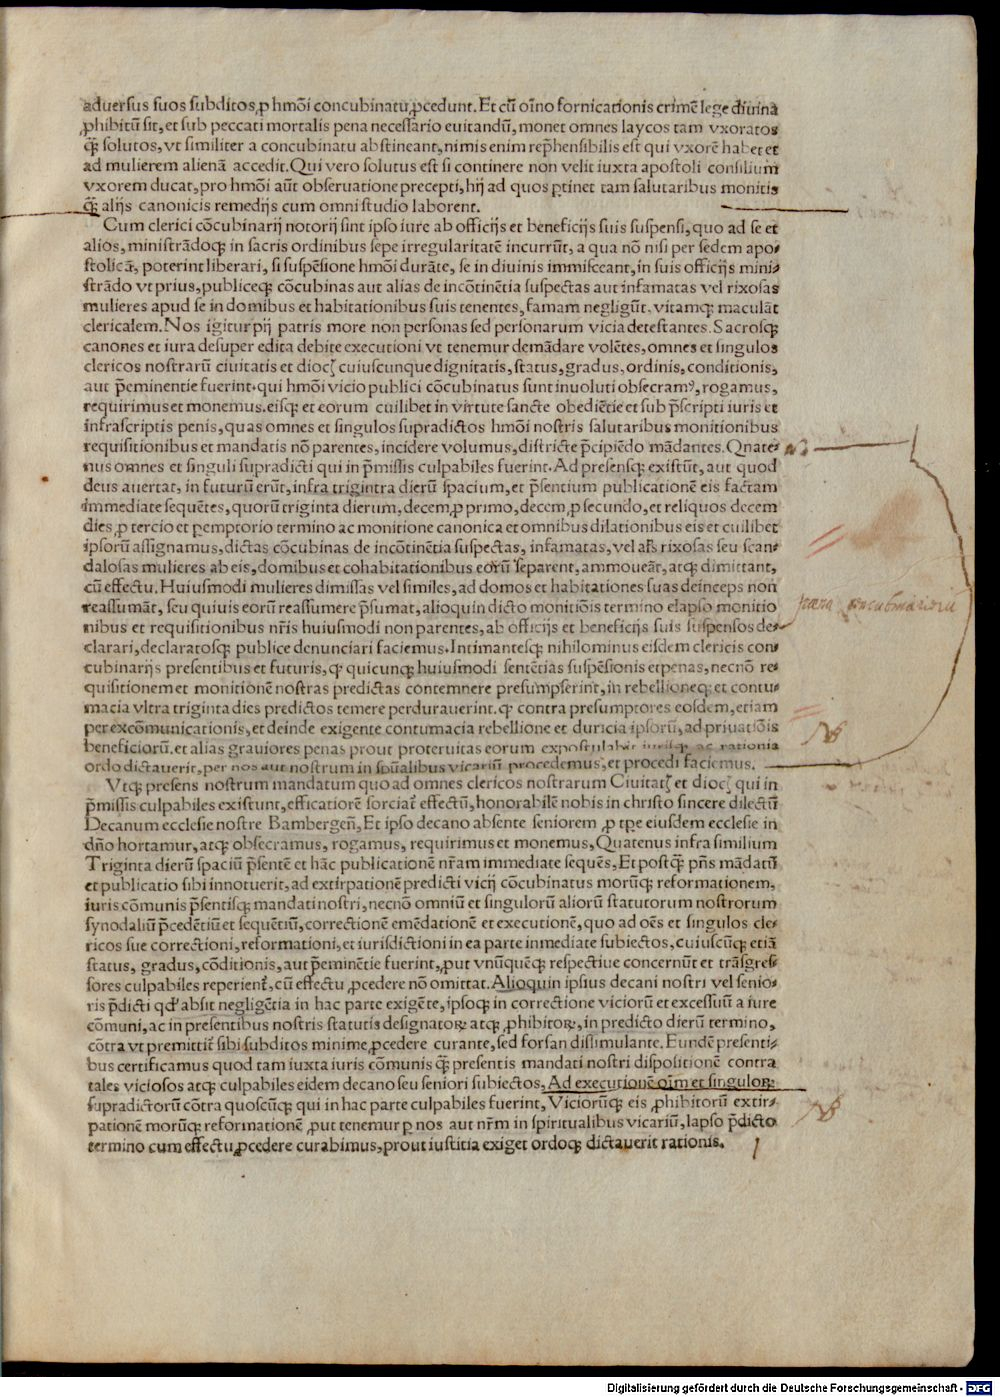 adversus suos subditos, ꝓ hmōi concubinatu ꝓcedunt. Et cū oīno fornicationis crimē lege diuina
ꝓhibitū sit, et sub peccati mortalis pena necessario euitandū, monet omnes laycos tam vxoratos
q̄ꝫ solutos, vt similiter a concubinatu abstineant, nimis enim rep̄hensibilis est qui vxorē habet et
ad mulierem alienā accedit. Qui vero solutus est si continere non velit iuxta apostoli consilium
vxorem ducat, pro hmōi aūt obseruatione precepti, hij ad quos ꝑtinet tam salutaribus monitis
q̄ꝫ alijs canonicis remedijs cum omni studio laborent.
Cum clerici cōcubinarij notorij sint ipso iure ab officijs et beneficijs suis suspensi, quo ad se et
alios, ministrādoqꝫ in sacris ordinibus sepe irregularitatē incurrūt, a qua nō nisi per sedem apo⸗
stolicā, poterint liberari, si suspēsione hmōi durāte, se in diuinis immisceant, in suis officijs mini⸗
strādo vt prius, publiceqꝫ cōcubinas aut alias de incōtinētia suspectas aut infamatas vel rixosas
mulieres apud se in domibus et habitationibus suis tenentes, famam negligūt, vitamqꝫ maculāt
clericalem. Nos igitur pij patris more non personas sed personarum vicia detestantes. Sacrosqꝫ
canones et iura desuper edita debite executioni vt tenemur demādare volētes, omnes et singulos
clericos nostrarū ciuitatis et diocꝭ cuiuscunque dignitatis, status, gradus, ordinis, conditionis,
aut p̄eminentie fuerint. qui hmōi vicio publici cōcubinatus sunt inuoluti obsecramꝰ, rogamus,
requirimus et monemus. eisqꝫ et eorum cuilibet in virtute sancte obediētie et sub p̄scripti iuris et
infrascriptis penis, quas omnes et singulos supradictos hmōi nostris salutaribus monitionibus
requisitionibus et mandatis nō parentes, incidere volumus, districte p̄cipiēdo mādantes. Quate⸗
nus omnes et singuli supradicti qui in p̄missis culpabiles fuerint. Ad presensqꝫ existūt, aut quod
deus auertat, in futurū erūt, infra trigintra dierū spacium, et p̄sentium publicationē eis factam
immediate sequētes, quorū triginta dierum, decem, ꝓ primo, decem, ꝓ secundo, et reliquos decem
dies, ꝓ tercio et ꝑemptorio termino ac monitione canonica et omnibus dilationibus eis et cuilibet
ipsorū assignamus, dictas cōcubinas de incōtinētia suspectas, infamatas, vel als̄ rixosas seu scan⸗
dalosas mulieres ab eis, domibus et cohabitationibus eorū separent, ammoueāt, atqꝫ dimittant,
cū effectu. Huiusmodi mulieres dimissas vel similes, ad domos et habitationes suas deinceps non
reassumāt, seu quiuis eorū reassumere p̄sumat, alioquin dicto monitiōis termino elapso monitio
nibus et requisitionibus nr̄is huiusmodi non parentes, ab officijs et beneficijs suis suspensos de⸗
clarari, declaratosqꝫ publice denunciari faciemus. Intimantesqꝫ nihilominus eisdem clericis con⸗
cubinarijs presentibus et futuris, qꝙ quicunqꝫ huiusmodi sentētias suspēsionis et penas, necnō re⸗
quisitionem et monitionē nostras predictas contemnere presumpserint, in rebellioneqꝫ et contu⸗
macia vltra triginta dies predictos temere perdurauerint. ꝙ contra presumptores eosdem, etiam
per excōmunicationis, et deinde exigente contumacia rebellione et duricia ipsorū, ad priuatiōis
beneficiorū. et alias grauiores penas prout proteruitas eorum expostulabit iurisqꝫ ac rationis
ordo dictauerit, per nos aut nostrum in spūalibus vicariū procedemus, et procedi faciemus.
Vtqꝫ presens nostrum mandatum quo ad omnes clericos nostrarum Ciuitatꝭ et diocꝭ qui in
p̄missis culpabiles existunt, efficatiorē sorciat᷑ effectū, honorabilē nobis in christo sincere dilectū
Decanum ecclesie nostre Bambergeñ, Et ipso decano absente seniorem ꝓ tꝑe eiusdem ecclesie in
dño hortamur, atqꝫ obsecramus, rogamus, requirimus et monemus, Quatenus infra similium
Triginta dierū spaciū p̄sentē et hāc publicationē nr̄am immediate sequēs, Et postq̄ꝫ pñs mādatū
et publicatio sibi innotuerit, ad extirpationē predicti vicij cōcubinatus morūqꝫ reformationem,
iuris cōmunis p̄sentisqꝫ mandati nostri, necnō omniū et singulorū aliorū statutorum nostrorum
synodaliū p̄cedētiū et sequētiū, correctionē emēdationē et executionē, quo ad oēs et singulos cle⸗
ricos sue correctioni, reformationi, et iurisdictioni in ea parte inmediate subiectos, cuiuscūqꝫ etiā
status, gradus, cōditionis, aut p̄eminētie fuerint, ꝓut vnūquēqꝫ respectiue concernūt et trāsgres⸗
sores culpabiles reperient᷑, cū effectu ꝓcedere nō omittat. Alioquin ipsius decani nostri vel senio⸗
ris p̄dicti qd' absit negligētia in hac parte exigēte, ipsoqꝫ in correctione viciorū et excessuū a iure
cōmuni, ac in presentibus nostris statutis designatoꝝ atqꝫ ꝓhibitoꝝ, in predicto dierū termino,
cōtra vt premittit᷑ sibi subditos minime ꝓcedere curante, sed forsan dissimulante. Eundē presenti⸗
bus certificamus quod tam iuxta iuris cōmunis q̄ꝫ presentis mandati nostri dispositionē contra
tales viciosos atqꝫ culpabiles eidem decano seu seniori subiectos, Ad executionē oīm et singuloꝝ
supradictorū cōtra quoscūqꝫ qui in hac parte culpabiles fuerint, Viciorūqꝫ eis ꝓhibitorū extir⸗
pationē morūqꝫ reformationē ꝓut tenemur ꝑ nos aut nr̄m in spiritualibus vicariū, lapso p̄dicto
termino cum effectu ꝓcedere curabimus, prout iustitia exiget ordoqꝫ dictauerit rationis.
pena concubinariorū
Digitalisierung gefördert durch die Deutsche Forschungsgemeinschaft - DFG